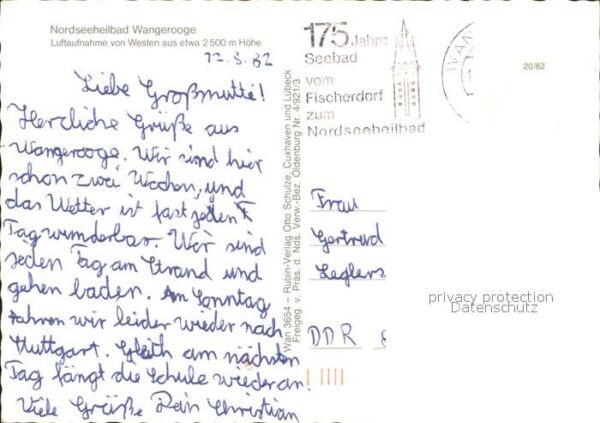 Nordseeheilbad Wangerooge
Luftaufnahme von Westen aus etwa 2500 m Höhe
12.8.82
Liebe Großmutti!
Herzliche Grüße aus
Wangerooge. Wir sind hier
schon zwei Wochen, und
das Wetter ist fast jeden
Tag wunderbar. Wir sind
jeden Tag am Strand und
gehen baden. Am Sonntag
fahren wir leider wieder nach
Stuttgart. Gleich am nächsten
Tag fängt die Schule wieder an!
Viele Grüße Dein Christian
Wan 3654 – Rubin-Verlag Otto Schulze, Cuxhaven und Lübeck
Freigeg. v. Präs. d. Nds. Verw.-Bez. Oldenburg Nr. 4/921/3
175 Jahre
Seebad
vom
Fischerdorf
zum
Nordseeheilbad
20/82
Frau
Gertrud
Leglers
DDR
privacy protection
Datenschutz